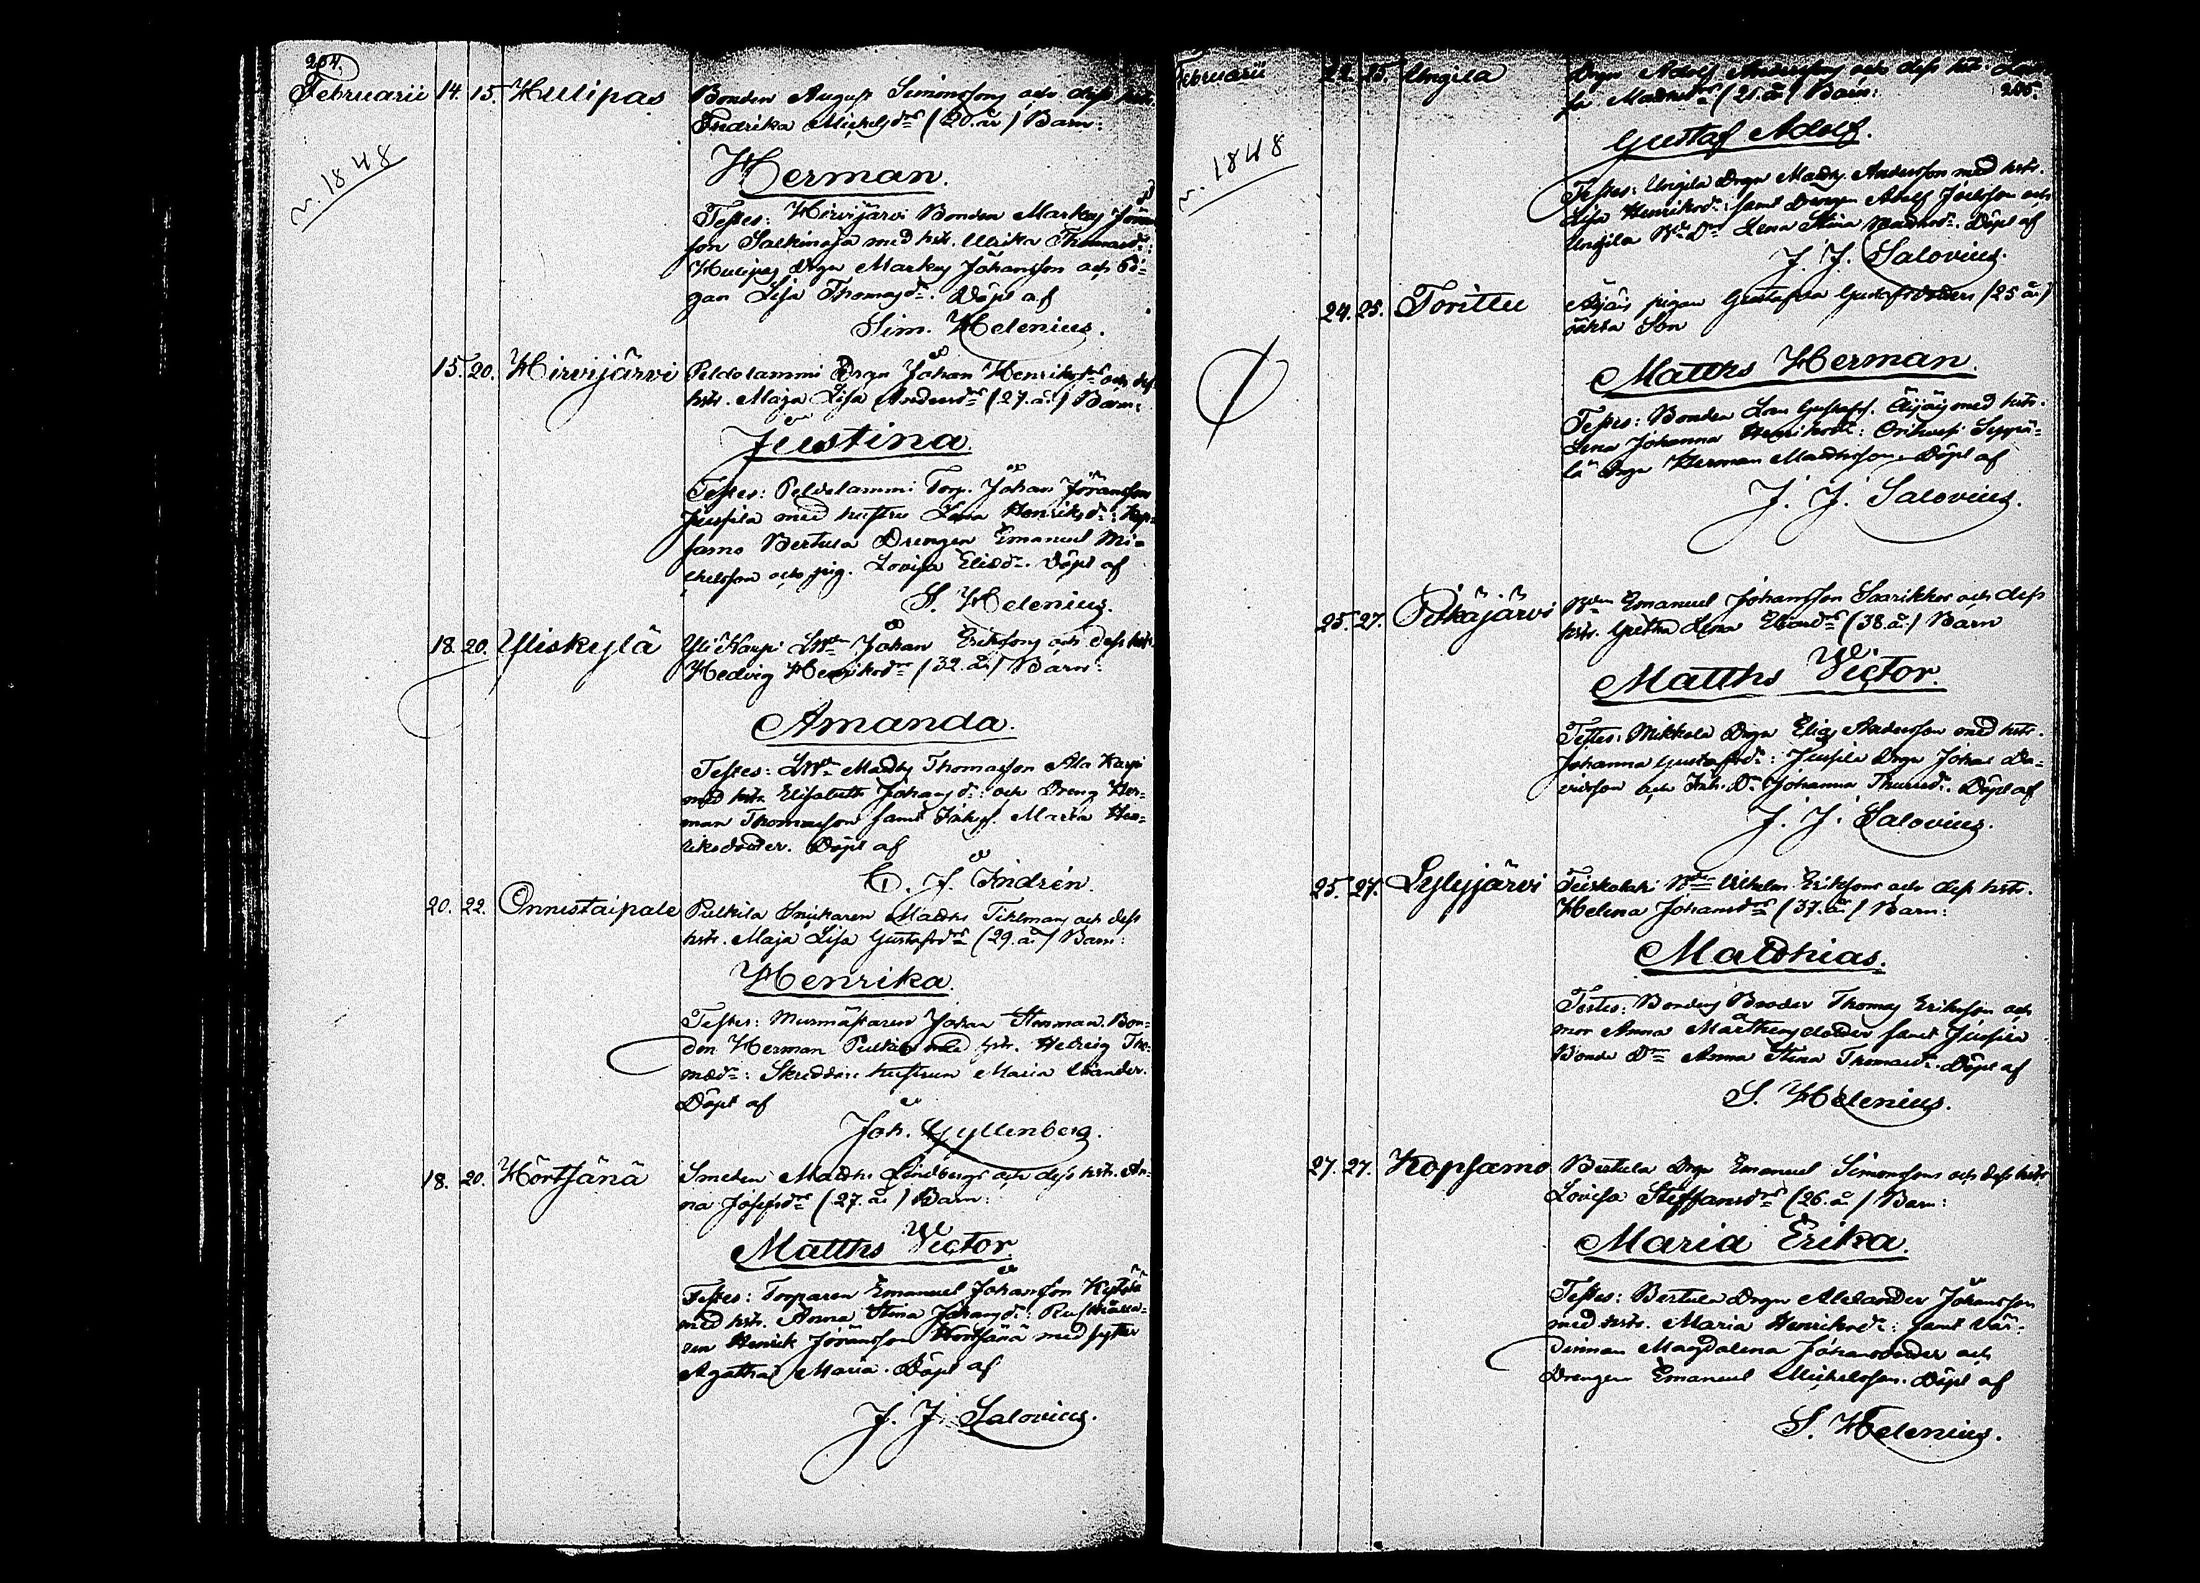 204.
Februarii 14. 15. Hulipas Bonden August Simonssons och dess hstr.
Fredrika Michelsdrs (20. år) Barn:
v. 1848
Herman.
Testes: Hirvijärvi Bonden Markus Jöran-
son med hstr. Ulrika Thomasdr:
Hulipas Drgn Markus Johansson och Pi-
gan Lisa Thomasdr. Döpt af
Sim. Helenius.
15. 20. Hirvijärvi Peldolammi Drgn Johan Henrikssns och dess
hstr. Maja Lisa Andersdrs (27. år) Barn:
Justina.
Testes: Peldolammi Torp. Johan Jöransson
Jussila med hustru Lena Henriksdr: Kop-
samo Bertula Drengen Emanuel Mi-
chelsson och pig. Lovisa Eliædr. Döpt af
S. Helenius.
18. 20. Yliskylä Yli Kaupi Johan Erikssons och dess hstr.
Hedvig Henriksdrs (32. år) Barn:
Amanda.
Testes: Matths Thomasson Ala Kaupi
med hstr. Elisabeth Johansdr: och Dreng Her-
man Thomasson samt Inhys. Maria Hen-
riksdotter. Döpt af
C. J. Indrén.
20. 22. Onnistaipale Pulkila Snickaren Matths Tihlmans och dess
hstr. Maja Lisa Gustafsdrs (29. år) Barn:
Henrika.
Testes: Murmästaren Johan Stenman. Bon-
den Herman Pulkila med hstr. Hedvig Tho-
mædr: Skreddare hustrun Maria
Döpt af
Joh. Gyllenberg.
18. 20. Hörtsänä Smeden Matths Lindbergs och dess hstr. An-
na Josefsdrs (27. år) Barn:
Matths Victor.
Testes: Torparen Emanuel Johansson
med hstr. Anna Stina Johansdr: Rusthålla-
ren Henrik Jöransson Hörtsänä med syster
Agatha Maria. Döpt af
J. J. Salovius.
205.
Februarii 22. 25. Ungila Drgn Adolf Anderssons och dess hstr. Lovi-
sa Mattsdrs (21. år) Barn:
v. 1848
Gustaf Adolf.
Testes: Ungila Drgn Matths Andersson med hstr.
Lisa Henriksdr: samt Drengen Adolf Joelsson och
Ungila Bds Dr Lena Stina Mattsdr. Döpt af
J. J. Salovius.
24. 25. Torittu Äijäis pigan Gustafva Gustafsdotters (25 år)
oäkta Son
Matths Herman.
Testes: Bonden Gustafss. Äijäis med hstr.
Lena Johanna Henriksdr: Orihvesi Seppä-
lä Drgn Herman Mattsson. Döpt af
J. J. Salovius.
25. 27. Pitkäjärvi Bdn Emanuel Johansson Saarikkos och dess
hstr. Gretha Lena (38. år) Barn
Matths Victor.
Testes: Mikkola Drgn Elias Andersson med hstr.
Johanna Gustafsdr: Jussila Drgn Johan Da-
vidsson och Inh. Dr Johanna Thuredr. Döpt af
J. J. Salovius.
25. 27. Lylyjärvi Teiskolahti Vilhelm Erikssons och dess hstr.
Helena Johansdrs (37. år) Barn:
Matthias.
Testes: Bondens Broder Thomas Eriksson och
mor Anna Mårthensdotter samt Jussila
Bonde Dr Anna Stina Thomasdr. Döpt af
S. Helenius.
27. 27. Kopsamo Bertula Drgn Emanuel Simonssons och dess hstr
Lovisa Steffansdrs (26. år) Barn:
Maria Erika.
Testes: Bertula Drgn Alexander Johansson
med hstr. Maria Henriksdr: samt Vär-
dinnan Magdalena Johansdotter och
Drengen Emanuel Michelsson. Döpt af
S. Helenius.